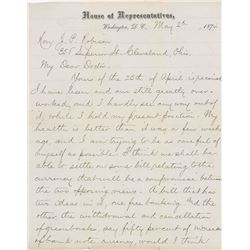 House of Representatives,
Washington, D. C. May 2d 1874
Rev J. E. Robison
351 Superior St. Cleveland, Ohio.
My Dear Doctor:
Yours of the 28th of April is received
I have been and am still greatly over-
worked, and I hardly see any way out of
it, while I hold my present position. My
health is better than it was a few weeks
ago, and I am trying to be as careful of
myself as possible. I think we shall be
able to settle on some bill relating to the
currency that will be a compromise between
the two opposing views. A bill that has
two ideas in it, one free banking and the
other the withdrawal and cancellation
of greenbacks, say fifty percent of increase
of bank note currency, would I think